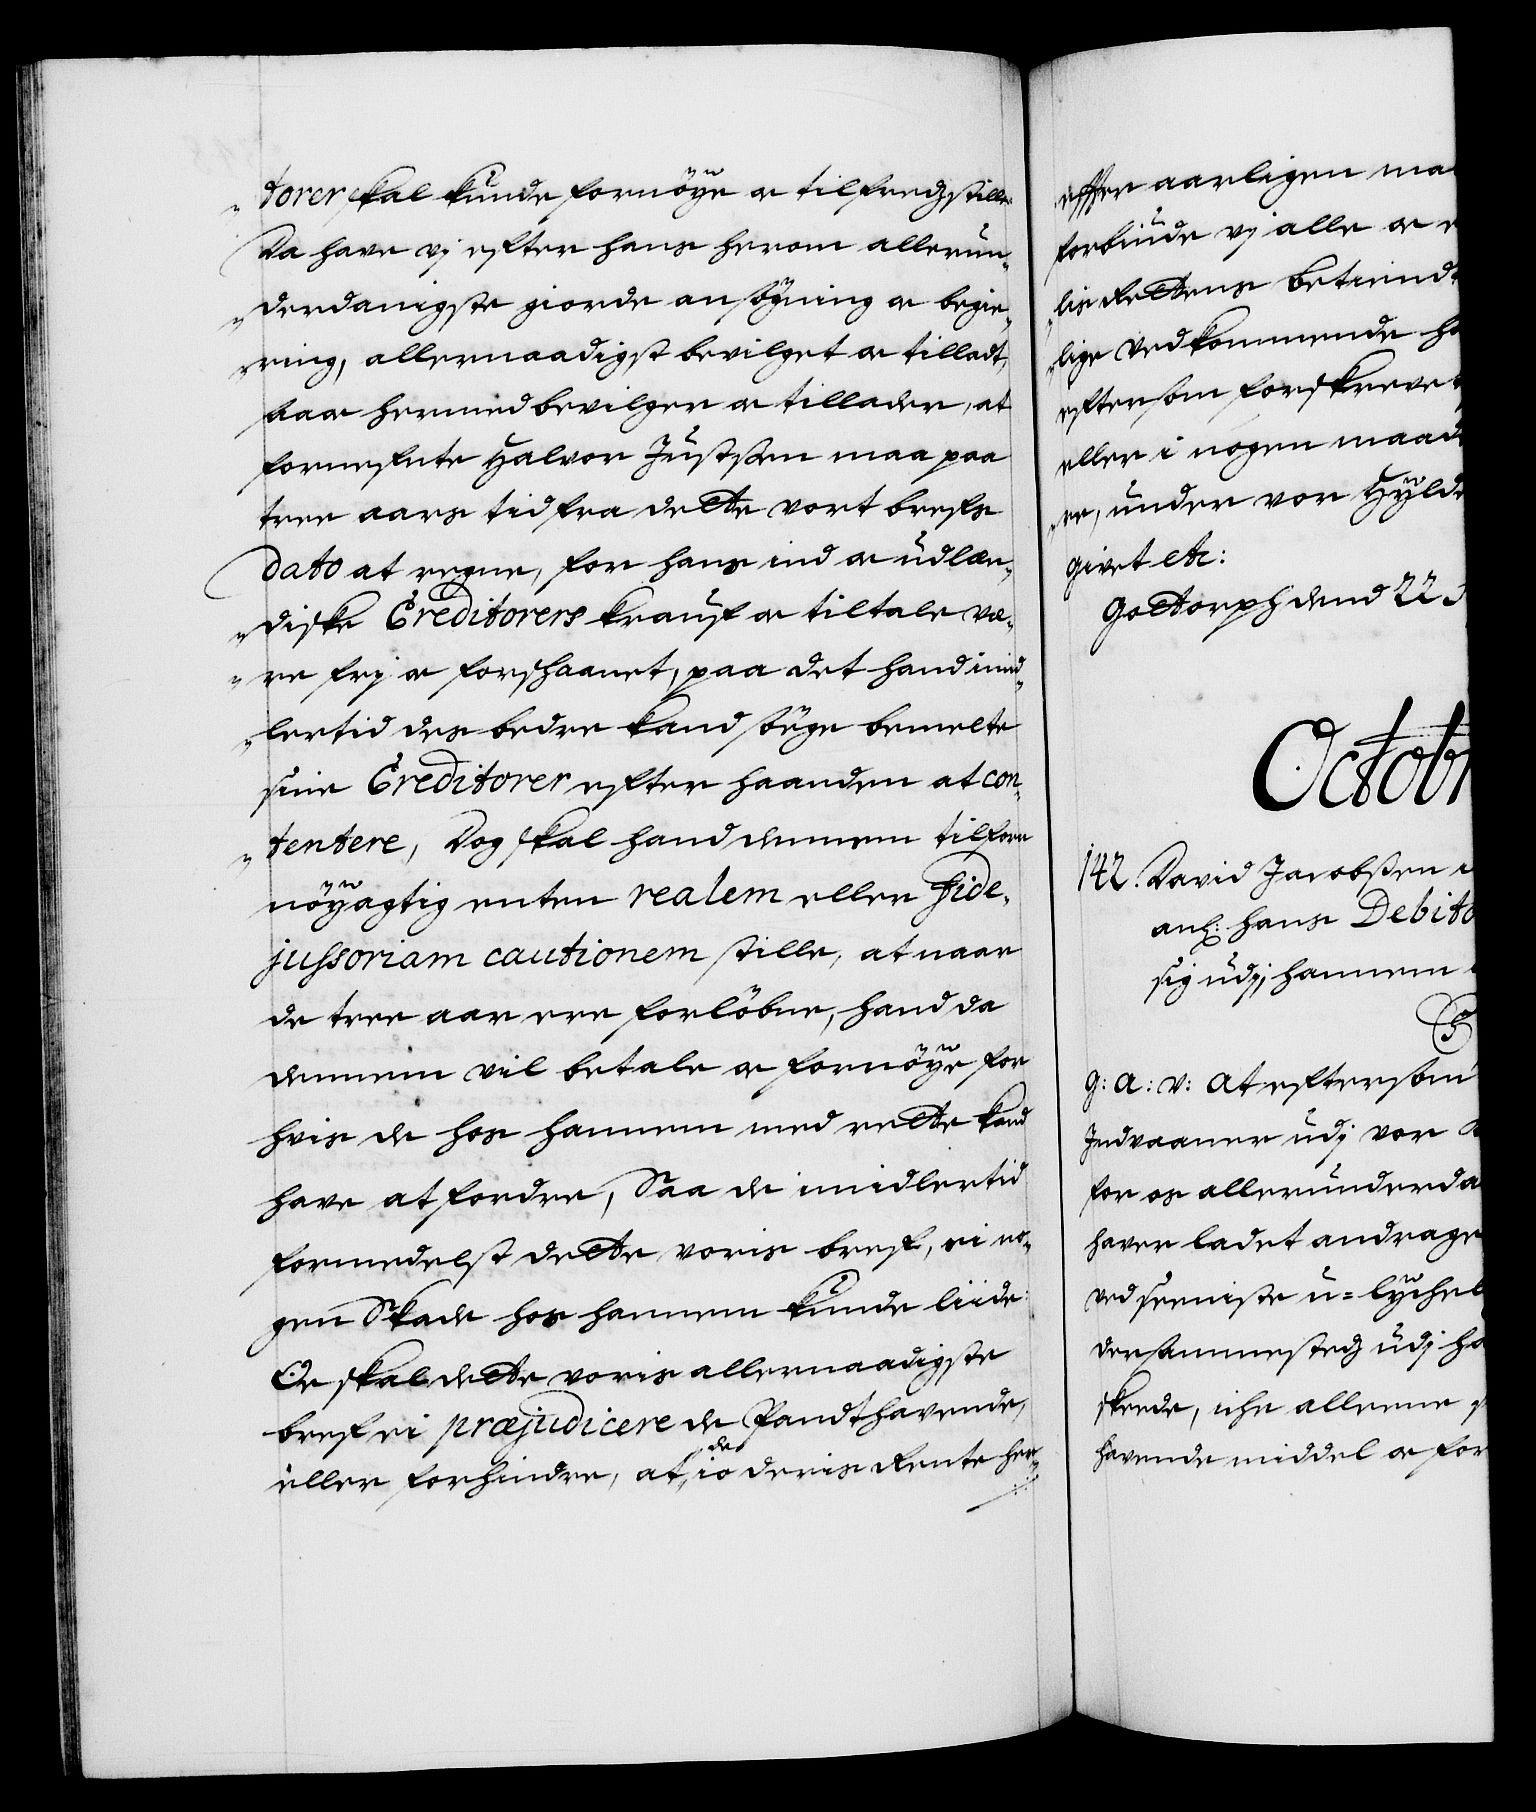 torer skal kunde fornöye oc tilfredsstille
Da have vj efter hans herom allerun-
derdanigste giorde ansögning oc begie-
ring, allernaadigst bevilget oc tilladt,
saa oc hermed bevilger oc tillader, at
fornefnte Halvor Justsen maa paa
tree aars tid fra dette vort brefs
dato at regne, for hans ind oc udlæn-
diske Creditorers krauf oc tiltale væ-
re frj oc forskaanet, paa det hand imid-
lertid des bedre kand söge bemelte
sine Creditorer efter haanden at con-
tentere, Dog skal hand dennem tilforn
nöyagtig enten realem eller Fide-
jussoriam cautionem stille, at naar
de tree aar ere forlöbne, hand da
dennem vil betale oc fornöye for
hvis de hos hannem med rette kand
have at fordre, Saa de imidlertid
formedelst dette voris bref, ei no-
gen Skade hos hannem kunde liide:
Oc skal dette voris allernaadigste
bref ei præjudicere de Pandthavende,
eller forhindre, at de jo deris Rente her-
effter aarligen maa
forbiude vj alle oc e
lis Rettens betiend
lige vedkommende ha
eftersom forskreve
eller i nogen maad
re, under vor Hylde
givet etc:
Gottorph dend 22 S
Octobr
142. David Jacobsen
anl: hans Debito
sig udj hannem
G: A: V: At eftersom
Indvaaner udj vor
for os allerunderda
haver ladet andrage
ved seeniste u=lychel
dersammesteds udj ha
skeede, iche alleene
havende middel oc for